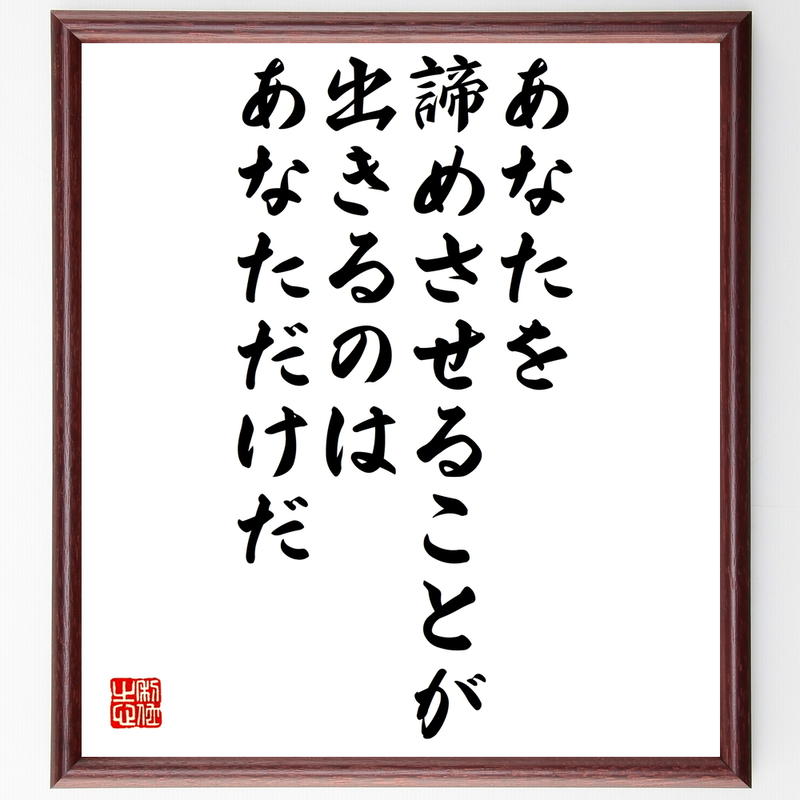 あなたを
諦めさせることが
出きるのは
あなただけだ